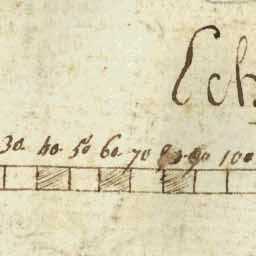 Ech
30 40 50 60 70 80 90 100